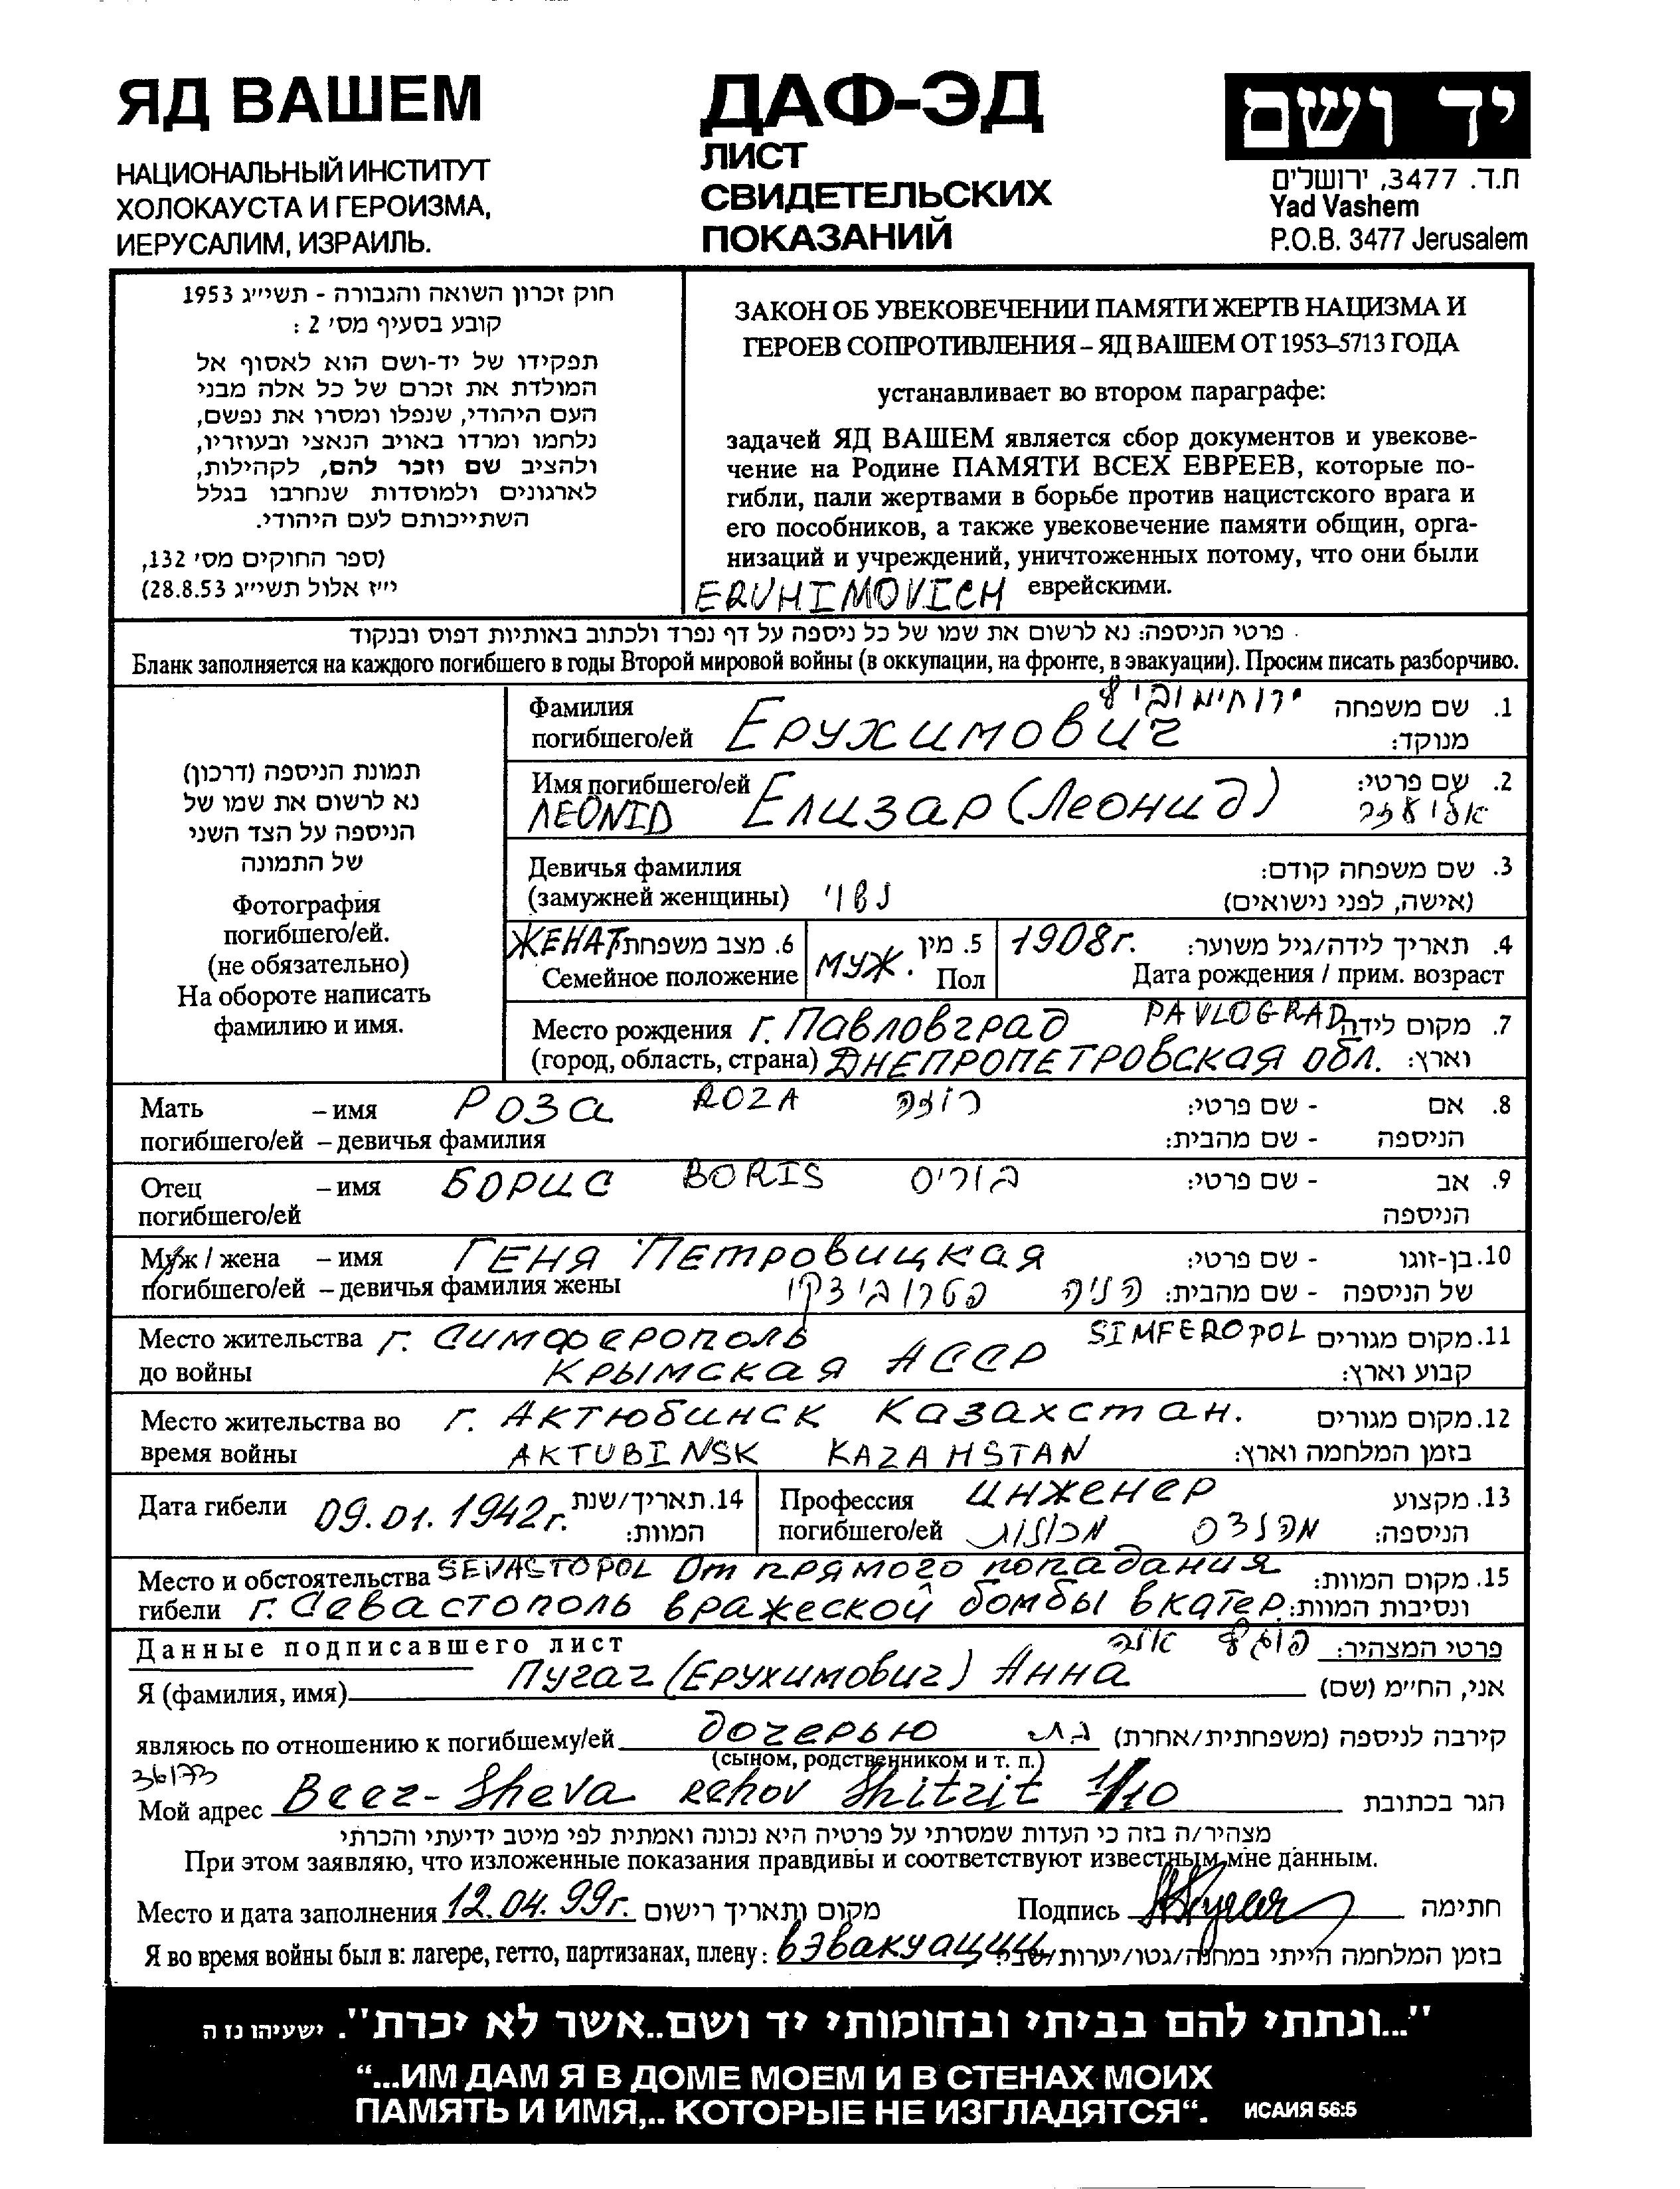 ЯД ВАШЕМ
НАЦИОНАЛЬНЫЙ ИНСТИТУТ
ХОЛОКАУСТА И ГЕРОИЗМА,
ИЕРУСАЛИМ, ИЗРАИЛЬ.
ДАФ-ЭД
ЛИСТ
СВИДЕТЕЛЬСКИХ
ПОКАЗАНИЙ
יד ושם
ת.ד. 3477, ירושלים
Yad Vashem
P.O.B. 3477 Jerusalem
חוק זכרון השואה והגבורה - תשי״ג 1953
קובע בסעיף מס׳ 2 :
תפקידו של יד-ושם הוא לאסוף אל
המולדת את זכרם של כל אלה מבני
העם היהודי, שנפלו ומסרו את נפשם,
נלחמו ומרדו באויב הנאצי ובעוזריו,
ולהציב שם וזכר להם, לקהילות,
לארגונים ולמוסדות שנחרבו בגלל
השתייכותם לעם היהודי.
(ספר החוקים מס׳ 132,
י״ז אלול תשי״ג 28.8.53)
ЗАКОН ОБ УВЕКОВЕЧЕНИИ ПАМЯТИ ЖЕРТВ НАЦИЗМА И
ГЕРОЕВ СОПРОТИВЛЕНИЯ – ЯД ВАШЕМ ОТ 1953–5713 ГОДА
устанавливает во втором параграфе:
задачей ЯД ВАШЕМ является сбор документов и увекове-
чение на Родине ПАМЯТИ ВСЕХ ЕВРЕЕВ, которые по-
гибли, пали жертвами в борьбе против нацистского врага и
его пособников, а также увековечение памяти общин, орга-
низаций и учреждений, уничтоженных потому, что они были
ERUHIMOVICH еврейскими.
פרטי הניספה: נא לרשום את שמו של כל ניספה על דף נפרד ולכתוב באותיות דפוס ובנקוד
Бланк заполняется на каждого погибшего в годы Второй мировой войны (в оккупации, на фронте, в эвакуации). Просим писать разборчиво.
תמונת הניספה (דרכון)
נא לרשום את שמו של
הניספה על הצד השני
של התמונה
Фотография
погибшего/ей.
(не обязательно)
На обороте написать
фамилию и имя.
Фамилия ירוחימוביץ 1. שם משפחה
погибшего/ей Ерухимович מנוקד:
Имя погибшего/ей Елизар (Леонид) 2. שם פרטי:
LEONID אליעזר
Девичья фамилия 3. שם משפחה קודם:
(замужней женщины) נשוי (אישה, לפני נישואים)
ЖЕНАТ 6. מצב משפחתי
Семейное положение
муж. 5. מין
Пол
1908г. 4. תאריך לידה/גיל משוער:
Дата рождения / прим. возраст
Место рождения г. Павловград PAVLOGRAD 7. מקום לידה
(город, область, страна) ДНЕПРОПЕТРОВСКАЯ ОБЛ. וארץ:
Мать – имя Роза ROZA רוזה - שם פרטי: 8. אם
погибшего/ей – девичья фамилия - שם מהבית: הניספה
Отец – имя БОРИС BORIS בוריס - שם פרטי: 9. אב
погибшего/ей הניספה
Муж / жена – имя ГЕНЯ Петровицкая - שם פרטי: 10. בן-זוגו
погибшего/ей – девичья фамилия жены - שם מהבית: של הניספה
Место жительства г. Симферополь SIMFEROPOL 11. מקום מגורים
до войны Крымская АССР קבוע וארץ:
Место жительства во г. Актюбинск Казахстан. 12. מקום מגורים
время войны AKTUBINSK KAZAHSTAN בזמן המלחמה וארץ:
Дата гибели 09.01.1942г. 14. תאריך/שנת
המוות:
Профессия инженер 13. מקצוע
погибшего/ей מהנדס מכונות הניספה:
Место и обстоятельства SEVASTOPOL От прямого попадания 15. מקום המוות:
гибели г. Севастополь вражеской бомбы в катер. ונסיבות המוות:
Данные подписавшего лист פוגץ׳ אנה פרטי המצהיר:
Я (фамилия, имя) Пугач (Ерухимович) Анна אני, הח״מ (שם)
являюсь по отношению к погибшему/ей дочерью בת קירבה לניספה (משפחתית/אחרת)
(сыном, родственником и т. п.)
Мой адрес Beer-Sheva rehov Shitrit 1/10 הגר בכתובת
מצהיר/ה בזה כי העדות שמסרתי על פרטיה היא נכונה ואמתית לפי מיטב ידיעתי והכרתי
При этом заявляю, что изложенные показания правдивы и соответствуют известным мне данным.
Место и дата заполнения 12.04.99г. מקום ותאריך רישום Подпись חתימה
Я во время войны был в: лагере, гетто, партизанах, плену: в эвакуации בזמן המלחמה הייתי במחנה/גטו/יערות/שבי:
״...ונתתי להם בביתי ובחומותי יד ושם..אשר לא יכרת״. ישעיהו נז ה
“...ИМ ДАМ Я В ДОМЕ МОЕМ И В СТЕНАХ МОИХ
ПАМЯТЬ И ИМЯ,.. КОТОРЫЕ НЕ ИЗГЛАДЯТСЯ“. ИСАИЯ 56:5